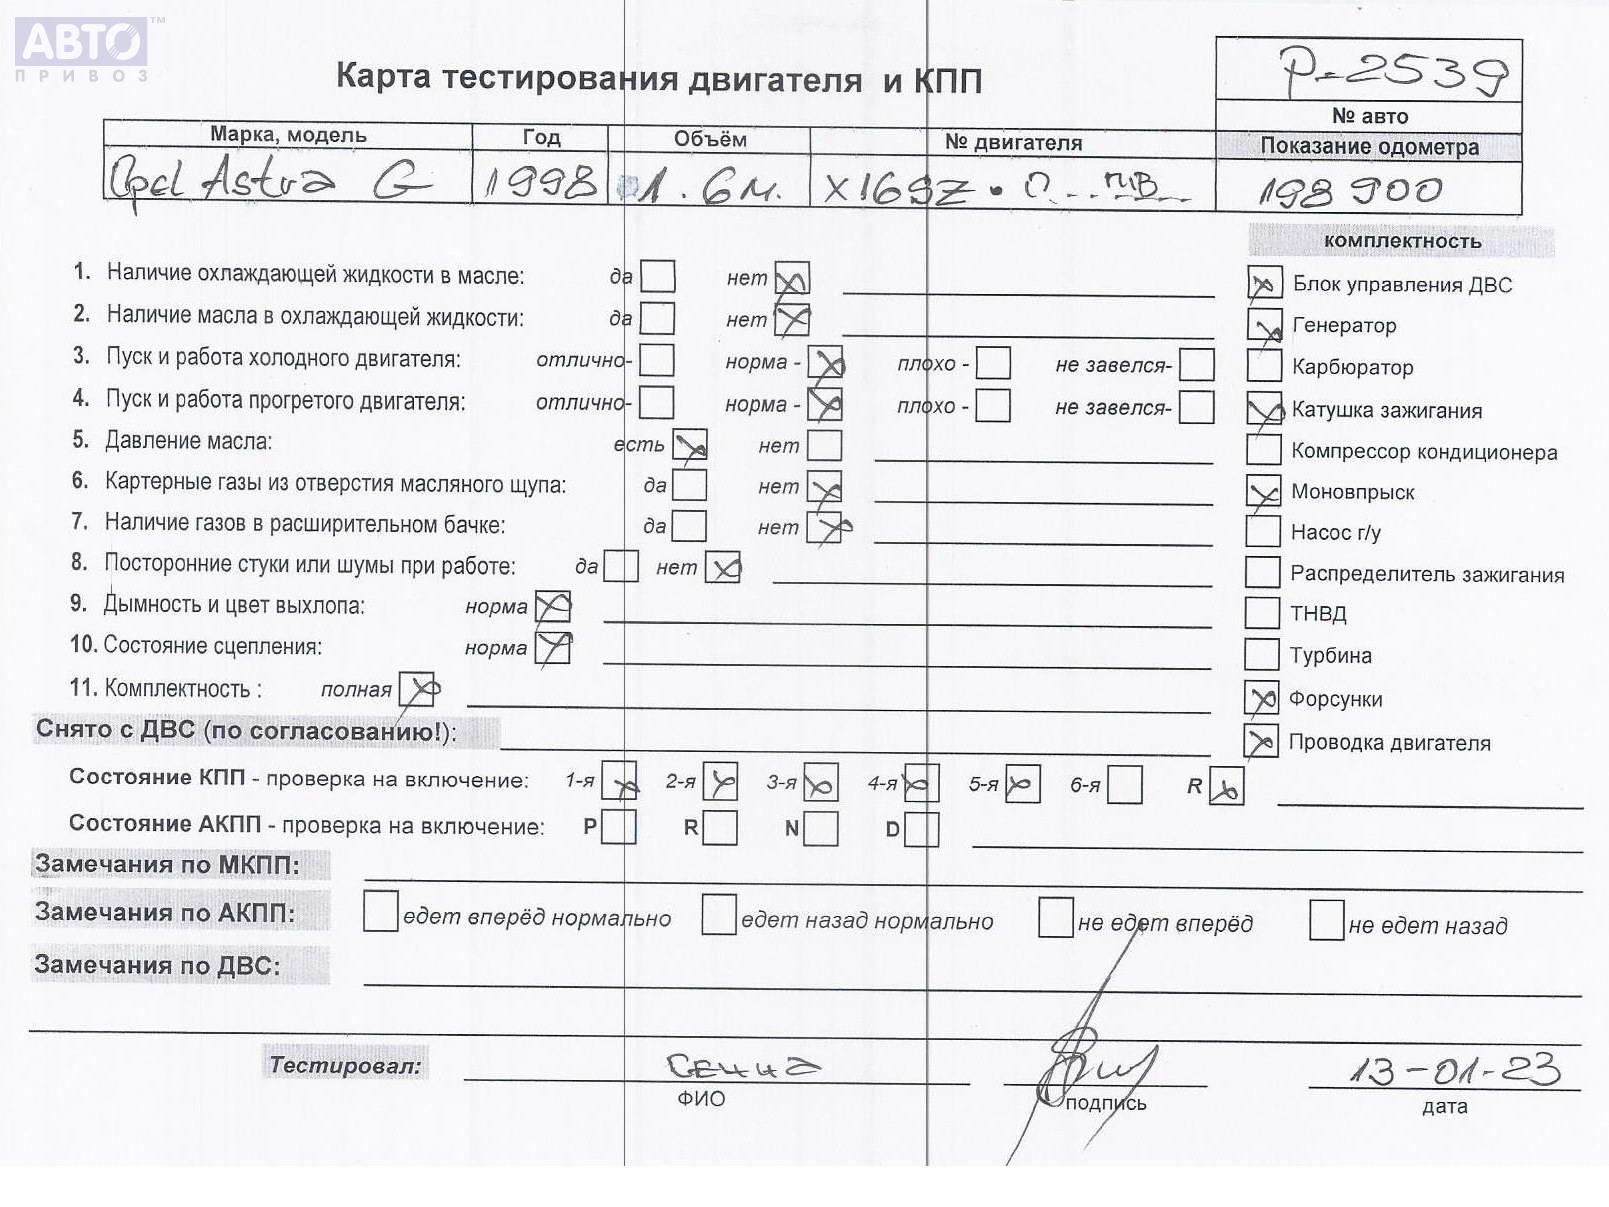 АВТО™
ПРИВОЗ
Карта тестирования двигателя и КПП
P-2539
№ авто
Марка, модель Год Объём № двигателя Показание одометра
Opel Astra G 1998 1.6м. X16SZ 198 900
комплектность
1. Наличие охлаждающей жидкости в масле: да нет
Блок управления ДВС
2. Наличие масла в охлаждающей жидкости: да нет
Генератор
3. Пуск и работа холодного двигателя: отлично- норма - плохо - не завелся-
Карбюратор
4. Пуск и работа прогретого двигателя: отлично- норма - плохо - не завелся-
Катушка зажигания
5. Давление масла: есть нет
Компрессор кондиционера
6. Картерные газы из отверстия масляного щупа: да нет
Моновпрыск
7. Наличие газов в расширительном бачке: да нет
Насос г/у
8. Посторонние стуки или шумы при работе: да нет
Распределитель зажигания
9. Дымность и цвет выхлопа: норма
ТНВД
10. Состояние сцепления: норма
Турбина
11. Комплектность : полная
Форсунки
Снято с ДВС (по согласованию!):
Проводка двигателя
Состояние КПП - проверка на включение: 1-я 2-я 3-я 4-я 5-я 6-я R
Состояние АКПП - проверка на включение: P R N D
Замечания по МКПП:
Замечания по АКПП: едет вперёд нормально едет назад нормально не едет вперёд не едет назад
Замечания по ДВС:
Тестировал: 13-01-23
ФИО подпись дата